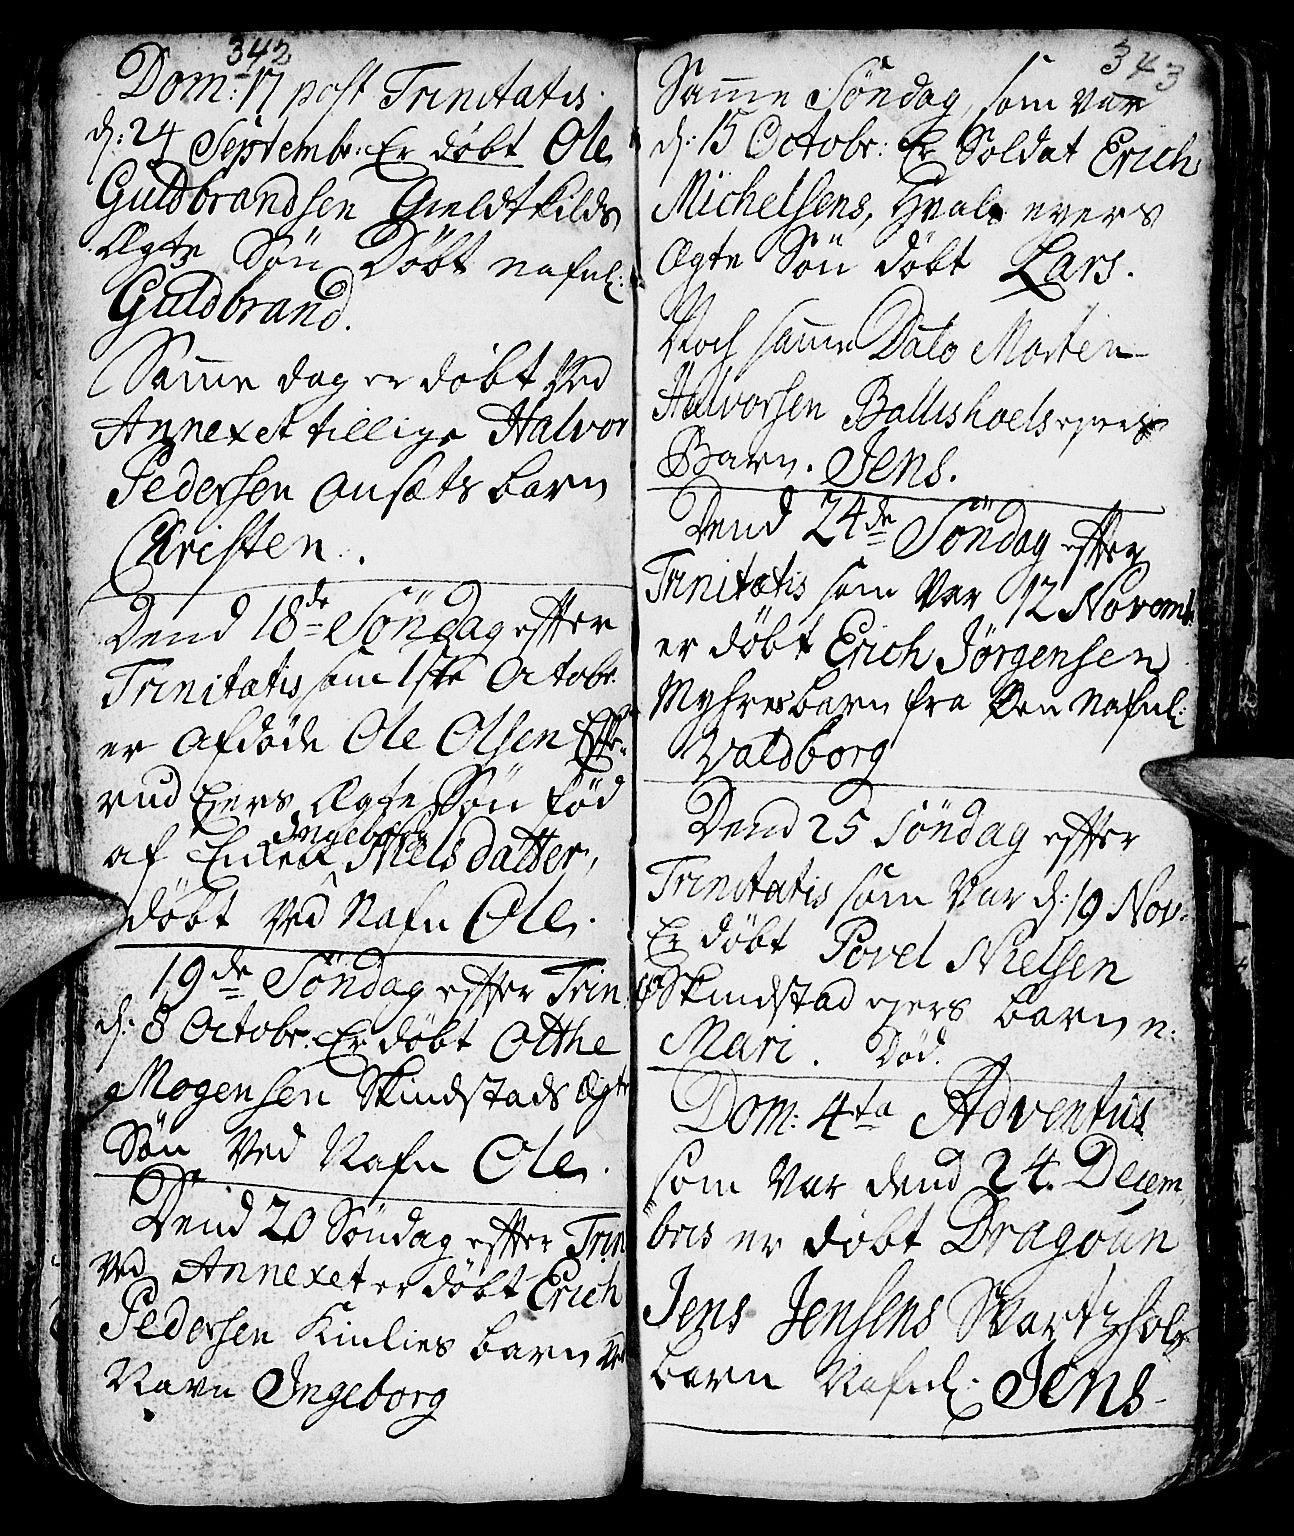 342
Dom: 17 post Trinitatis.
d: 24 Septembr: Er döbt Ole
Guldbrandsen Gieldtkilds
Ægte Sön Döbt nafnl:
Guldbrand.
Samme dag er döbt ved
Annexet tillige Halvor
Pedersen Ansæts barn
Christen.
Dend 18de Söndag effter
Trinitatis som 1ste Octobr.
er afdöde Ole Olsen Effte-
rud Eiers Ægte Sön föd
af Enken Ingeborg Nielsdatter,
döbt ved Nafn Ole.
19de Söndag effter Trin
d: 8 Octobr. Er döbt Otthe
Mogensen Skindstads Ægte
Sön ved Nafn Ole.
Dend 20 Söndag effter Trin
ved Annexet er döbt Erich
Pedersen Kinlies barn ved
Navn Ingeborg
343
Samme Söndag, som var
d: 15 Octobr: Er Soldat Erich
Michelsens, Hvals eyers
Ægte Sön döbt Lars.
Noch samme Dato Morten
Halvorsen Ballishoels eyers
Barn. Jens.
Dend 24de Söndag effter
Trinitatis som var 12 Novemb.
er döbt Erich Jörgensen
Myhres barn fra Een nafnl:
Valdborg
Dend 25 Söndag effter
Trinitatis som var d: 19 Nov:
Er döbt Povel Nielsen
Skindstad eyers barn n:
Mari. Död.
Dom: 4ta Adventus
som var dend 24. Decem
bris er döbt Dragoun
Jens Jensens Svartzhols
barn Nafnl: Jens-